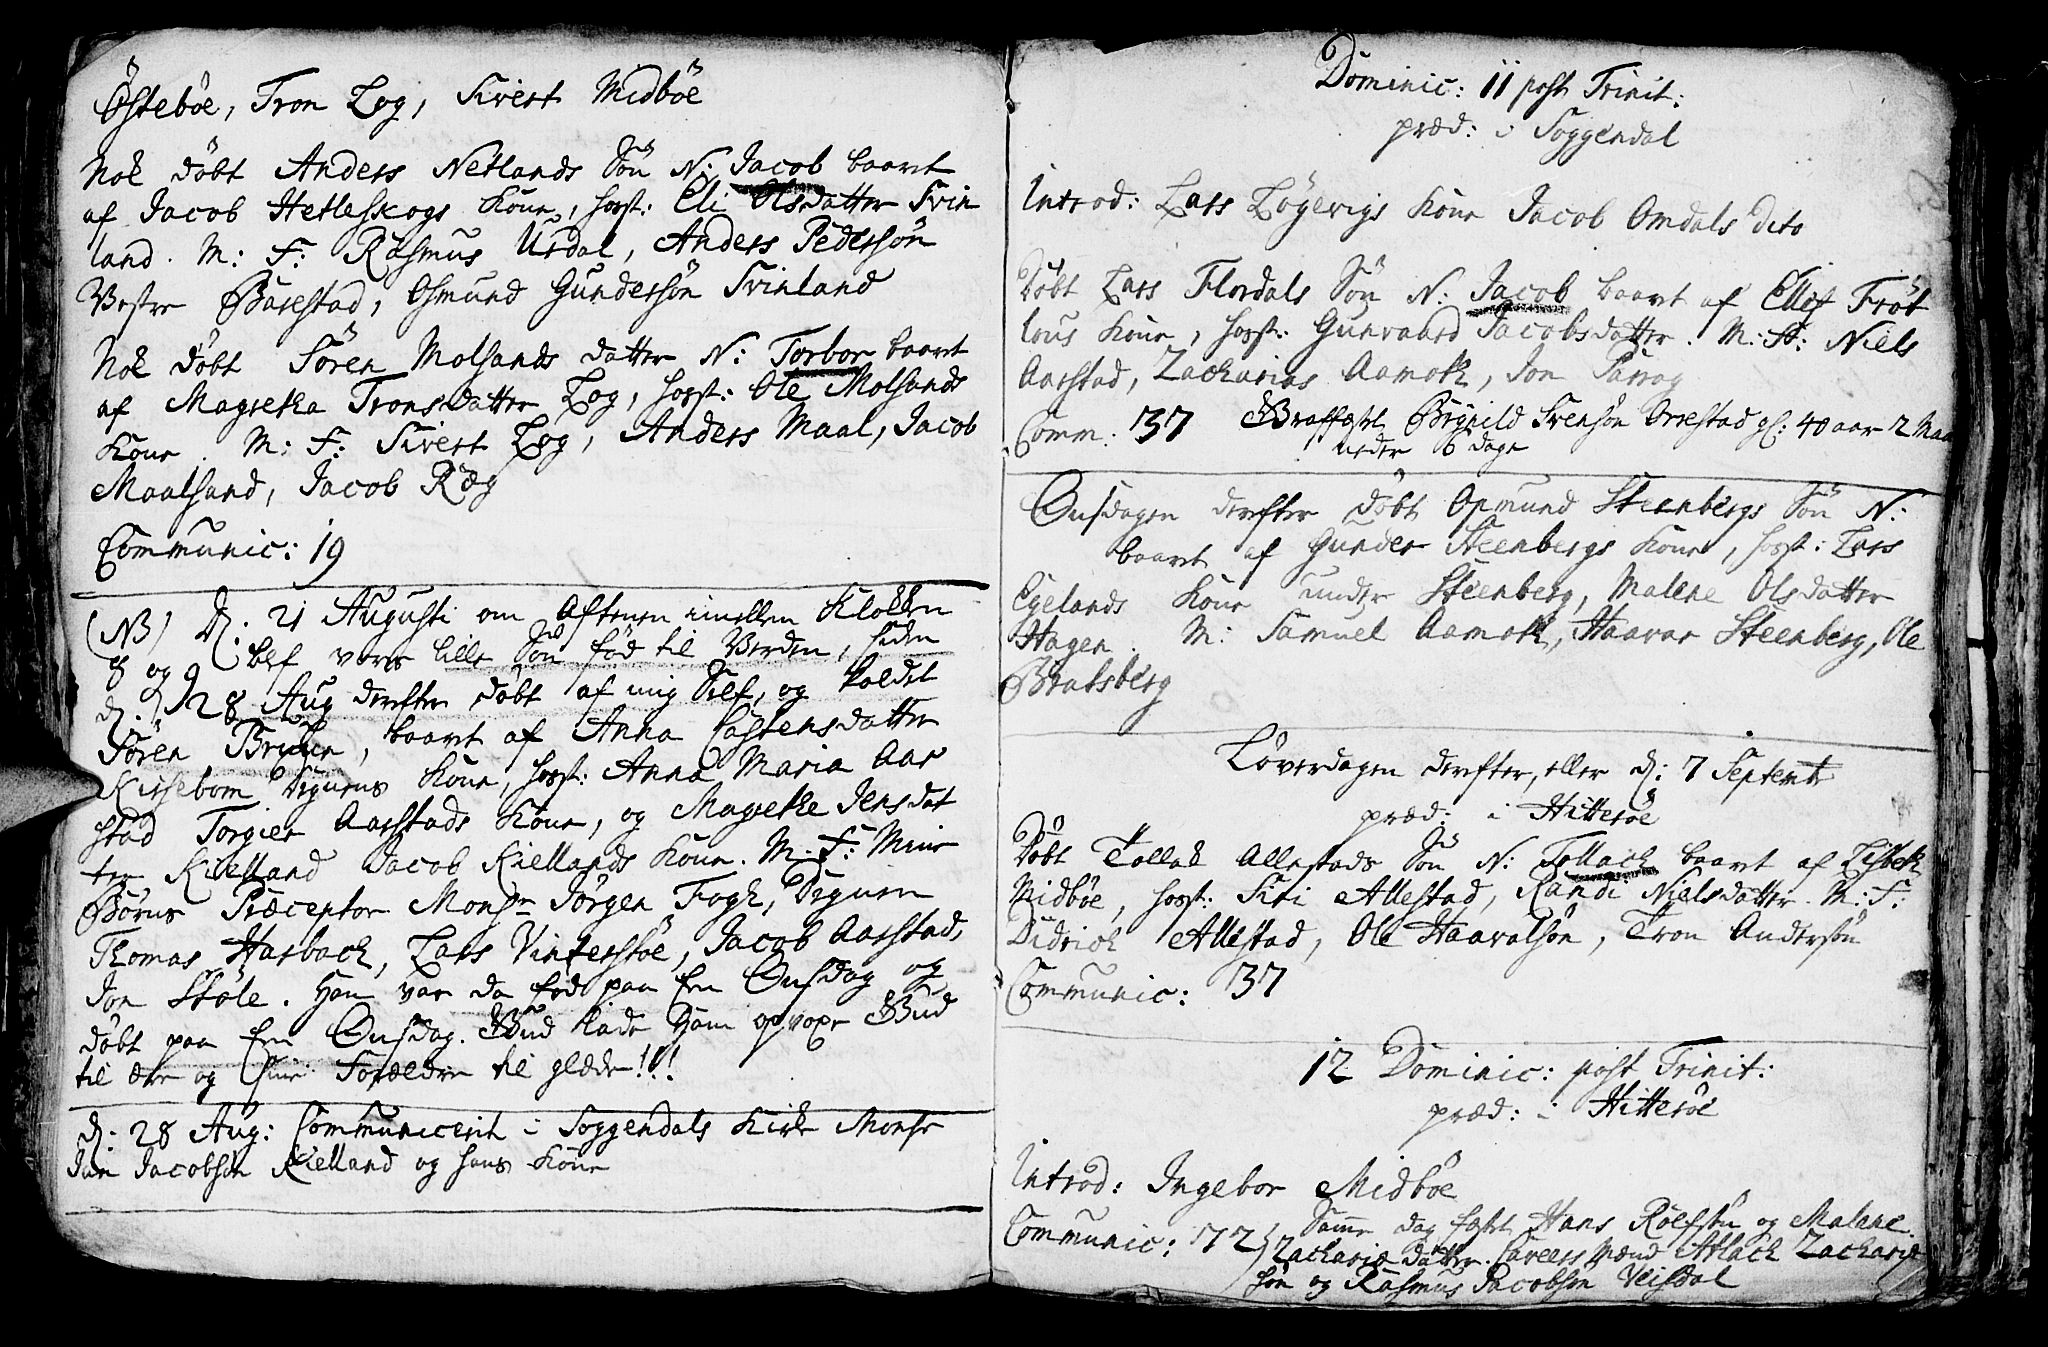 Østebøe, Tron Log, Sivert Midbøe
Nok døbt Anders Netlands Søn N: Jacob baaret
af Jacob Hetleskogs Kone, hosst: Eli Olsdatter Svin
land. M: F: Rasmus Urdal, Anders Pedersøn
Vestre Barestad, Osmund Gundersøn Svinland
Nok døbt Søren Molsands datter N: Torbor baaret
af Magretha Tronsdatter Log, hosst: Ole Molsands
Kone. M: F: Sivert Log, Anders Maal, Jacob
Maalsand, Jacob Ræg
Communic: 19
(NB) D: 21 Augusti om Aftenen imellem Klokken
8 og 9 blef vores lille Søn fød til Verden, siden
d: 28 Aug derefter døbt af mig Self, og kaldet
Søren, baaret af Anna Castensdatter
Kirsebom Kone, hosst: Anna Maria Aar
stad Torgier Aarstads Kone, og Magrethe Jensdat
ter Kielland Jacob Kiellands Kone. M: F: Mine
Børns Præceptor Monsr Jørgen Fogh,
Thomas Harbach, Lars Vinterstøe, Jacob Aarstad,
Jon Støle. Han var da fød paa en Onsdag og
døbt paa en Onsdag. Gud lade Ham opvoxe Gud
til ære og Sine Forældre til glæde!!!
d: 28 Aug: Communicerit i Soggendals Kirke Monsr
Jan Jacobsøn Kielland og hans Kone
Dominic: 11 post Trinit:
præd: i Soggendal
Introd: Lars Løgevigs Kone Jacob Omdals dito
Døbt Lars Flordals Søn N: Jacob baaret af Ellef Frøt
lous Kone, hosst: Gunvaard Jacobsdatter. M: F: Niels
Aarstad, Zacharias Aamoth, Jon
Comm: 37 Graffæstet Brynild Svensøn Orrestad gl: 40 aar 2 Maa
neder 6 dage
Onsdagen derefter døbt Osmund Steenbergs Søn N:
baaret af Gunder Steenbergs Kone, hosst: Lars
Egelands Kone under Steenberg, Malene Olsdatter
Hagen. M: Samuel Aamoth, Haavar Steenberg, Ole
Bratsberg
Løverdagen derefter, eller d: 7 Septemb
præd: i Hitterøe
Døbt Tollak Allestads Søn N: Tollach baaret af Lisbeth
Midbøe, hosst: Siri Allestad, Randi Nielsdatter. M: F:
Didrich Allestad, Ole Haavalsøn, Tron Andersøn
Communic: 37
12 Dominic: post Trinit:
præd: i Hitterøe
Introd: Ingebor Midbøe
Communic: 72 Samme dag fæstet Hans Roelfsøn og Malene
Zachariædatter. Caveers Mænd Atlach Zachariæ
søn og Rasmus Jacobsøn Veisdal